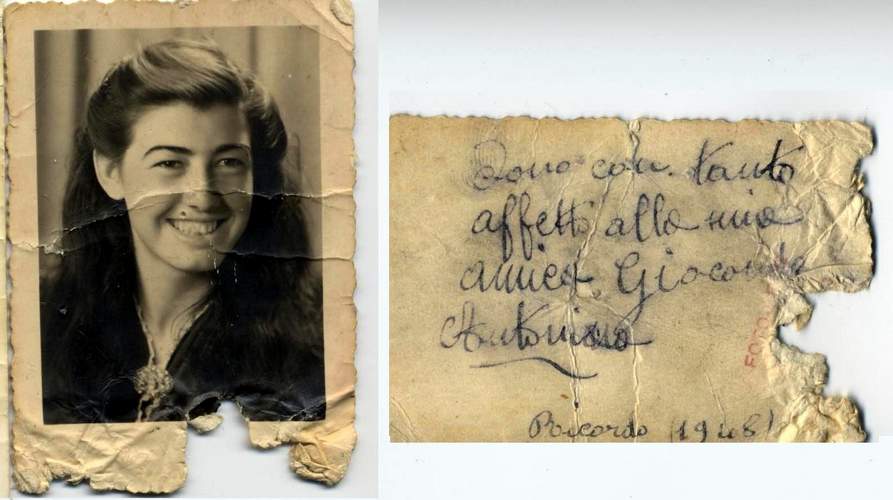 Dono con tanto
affetto alla mia
amica Gioconda
Antonina
Ricordo (1948)
FOTO